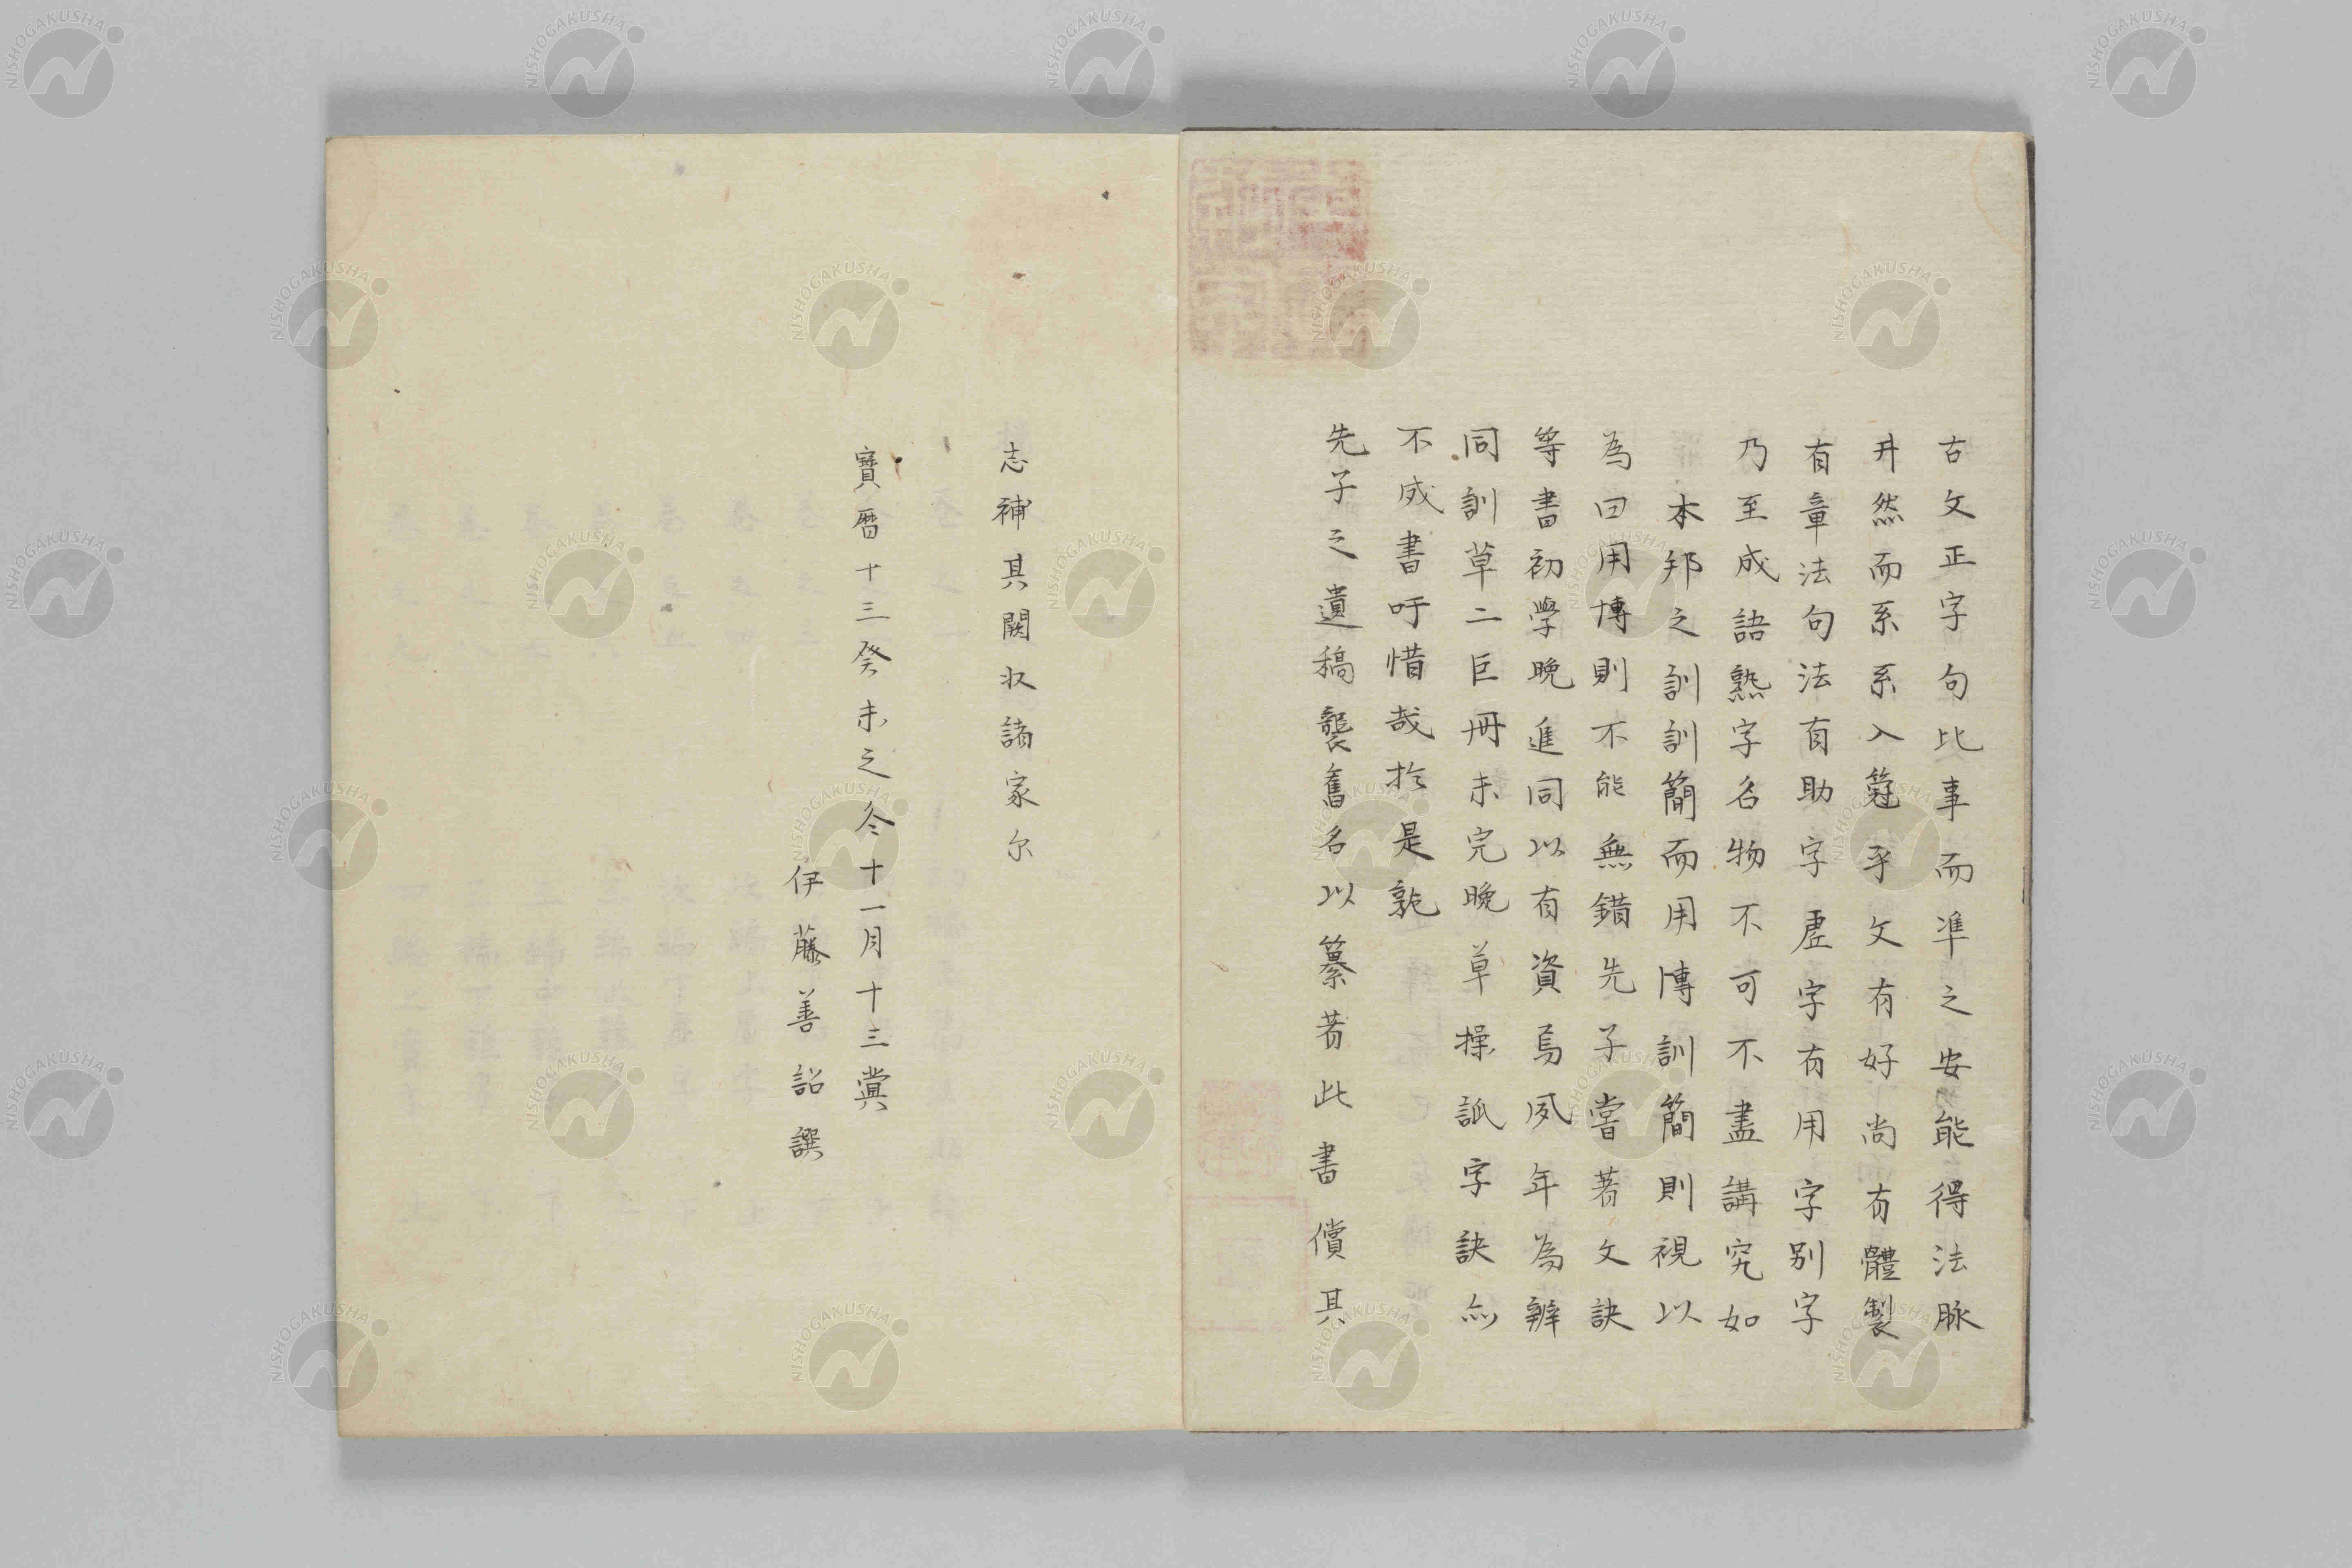 古文正字句比事而準之安能得法脉
井然而系系入冠乎文有好尚有體製
有章法句法有助字虛字有用字別字
乃至成語熟字名物不可不盡講究如
本邦之訓訓簡而用博訓簡則視以
為曰用博則不能無錯先子嘗著文訣
等書初學晚進同以有資焉夙年為辨
同訓草二巨冊未完晚草操觚字訣亦
不成書吁惜哉於是
先子之遺稿襲舊名以纂著此書償其
志補其闕収諸家尔
寶暦十三癸未之冬十一月十三蓂
伊藤善韶譔
NISHOGAKUSHA